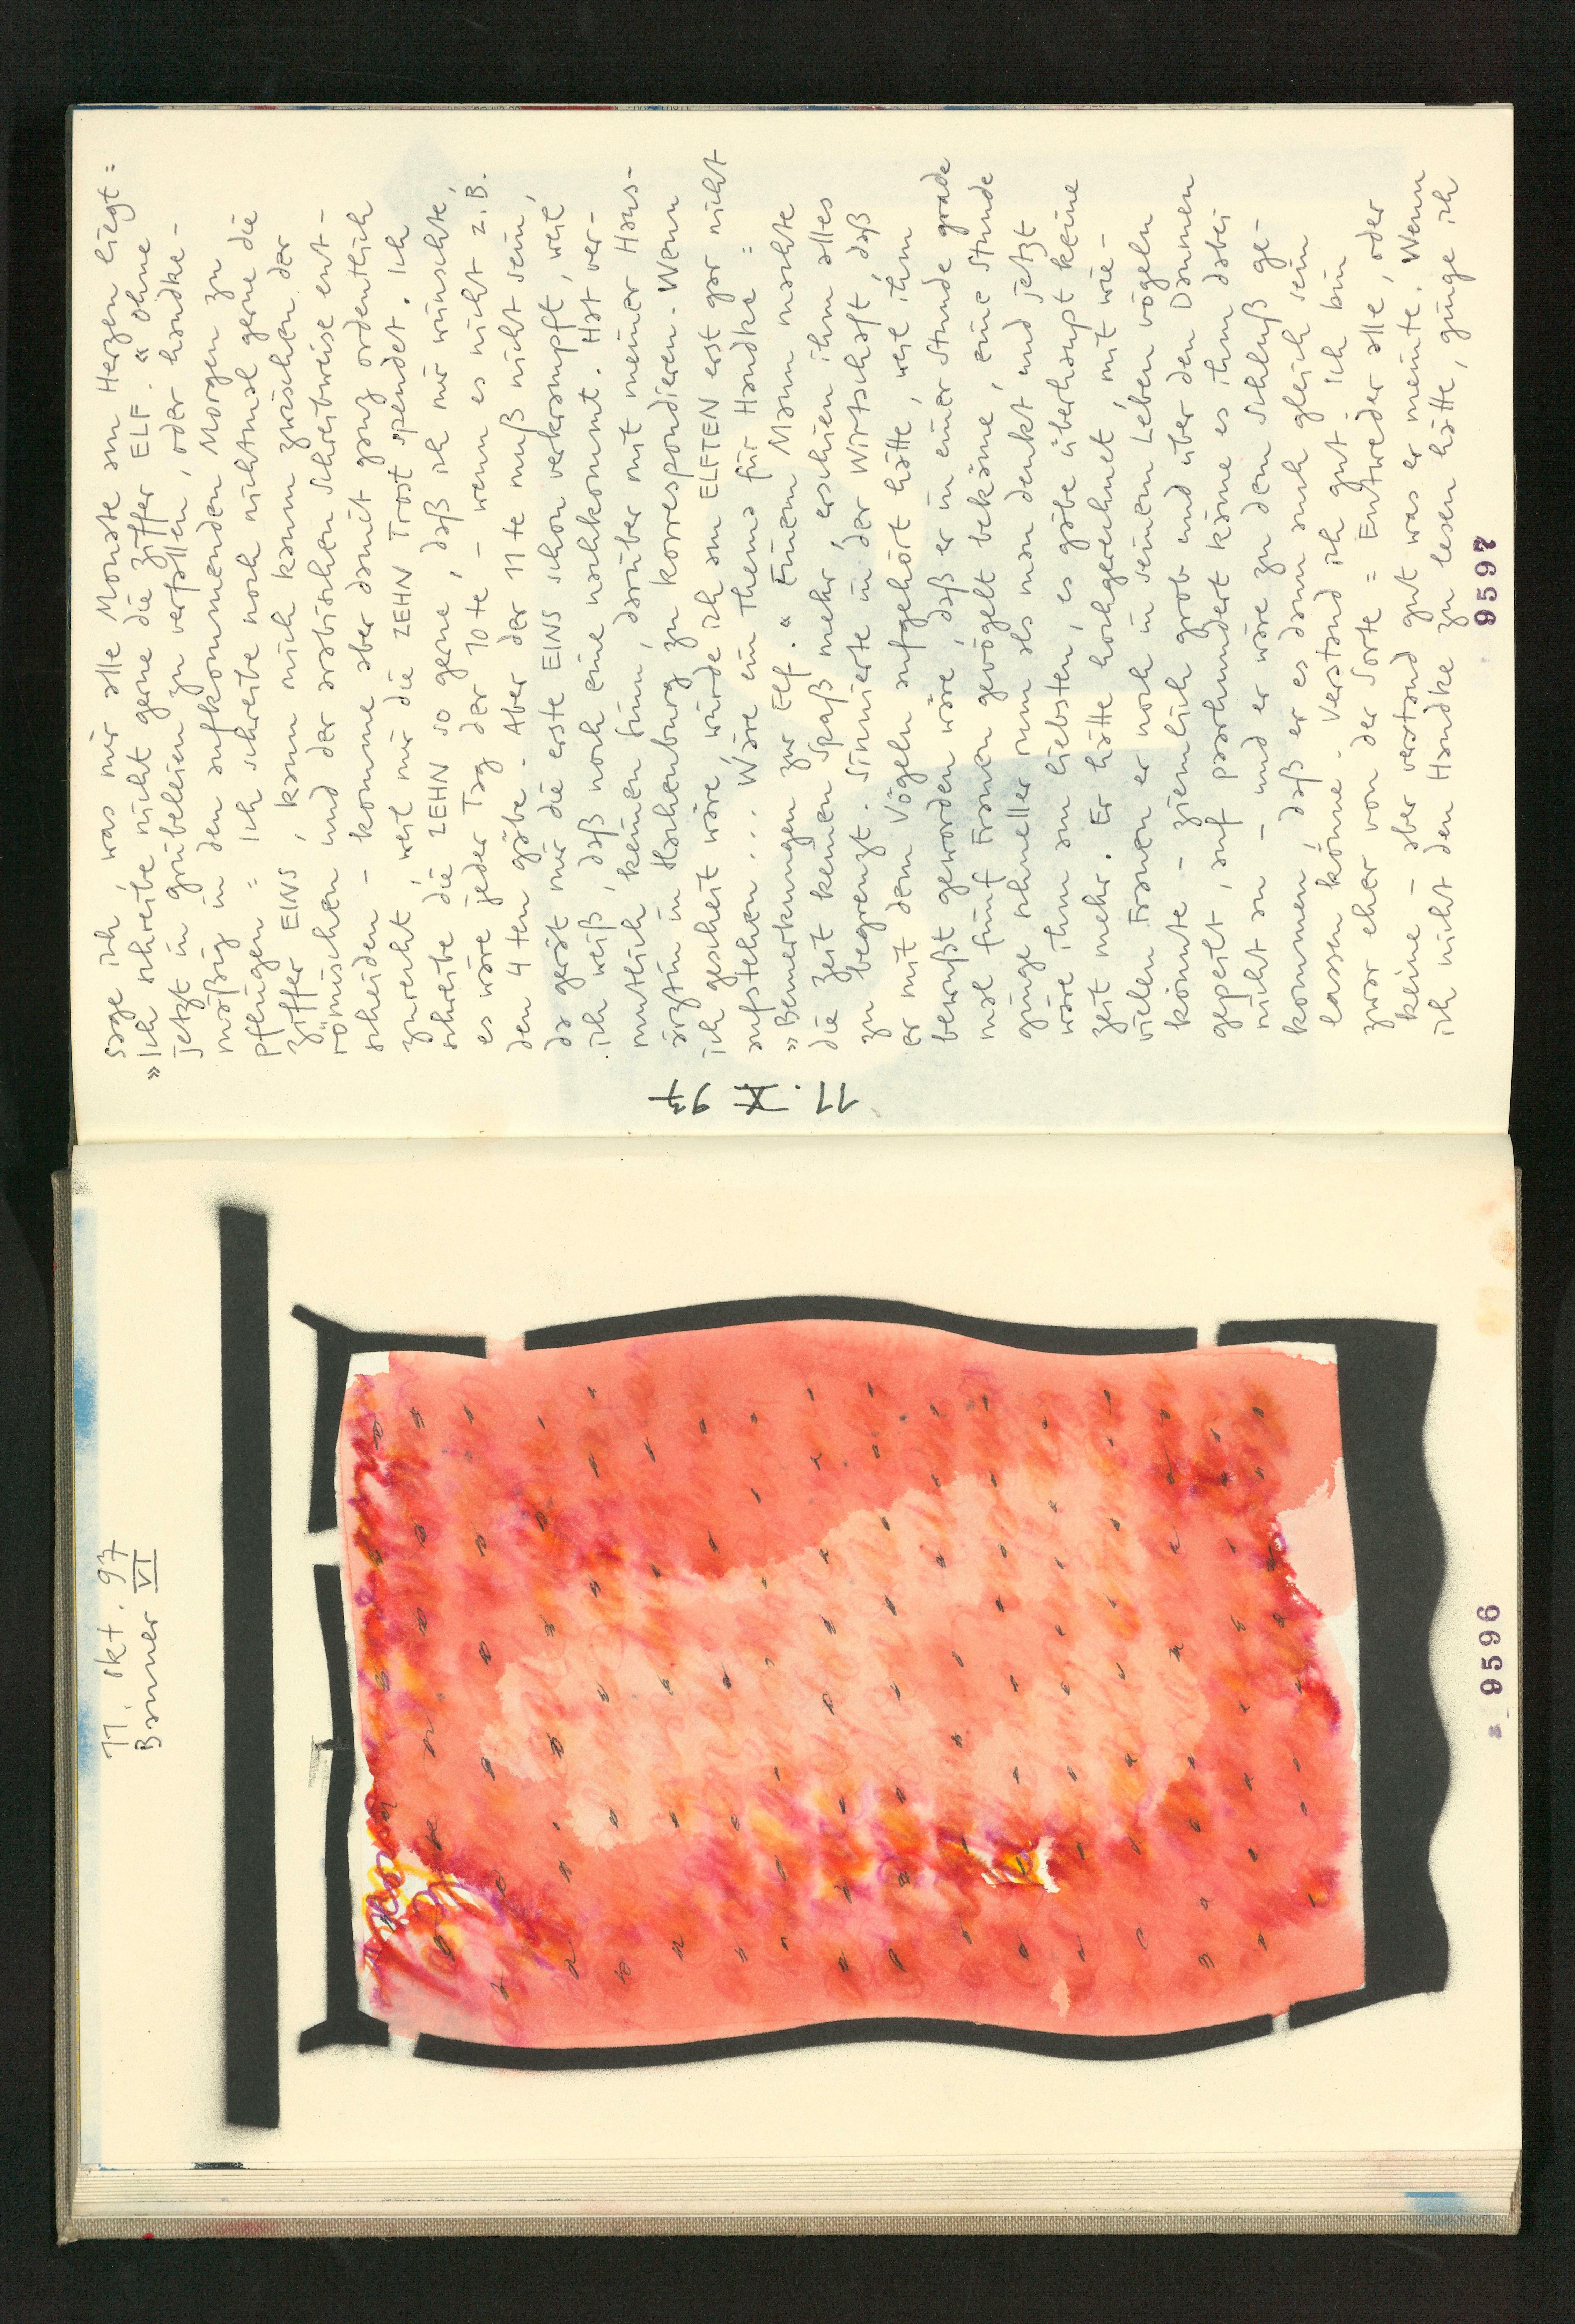 11. Okt. 97
Banner VI
9596
11. X 97
sage ich, was mir alle Monate am Herzen liegt =
»Ich schreibe nicht gerne die Ziffer ELF.« ohne
jetzt in Grübeleien zu verfallen, oder handke-
mäßig in den aufkommenden Morgen zu
pflügen = Ich schreibe noch nichtmal gerne die
Ziffer EINS, kann mich kaum zwischen der
römischen und der arabischen Schreibweise ent-
scheiden – komme aber damit ganz ordentlich
zurecht, weil mir die ZEHN Trost spendet. Ich
schreibe die ZEHN so gerne, daß ich mir wünschte,
es wäre jeder Tag der 10te, – wenn es nicht z.B.
den 4ten gäbe. Aber der 11te muß nicht sein,
da gerät mir die erste EINS schon verkrampft, weil
ich weiß, daß noch eine nachkommt. Hat ver-
mutlich keinen Sinn, darüber mit meiner Haus-
ärztin in Hachenburg zu korrespondieren. Wenn
ich gescheit wäre, würde ich am ELFTEN erst gar nicht
aufstehen... Wäre ein Thema für Handke =
»Bemerkungen zur Elf.« Einem Mann machte
die Zeit keinen Spaß mehr, erschien ihm alles
zu begrenzt. Sinnierte in der Wirtschaft, daß
er mit dem Vögeln aufgehört hätte, weil ihm
bewußt geworden wäre, daß er in einer Stunde grade
mal fünf Frauen gevögelt bekäme, eine Stunde
ginge schneller rum als man denkt, und jetzt
wäre ihm am liebsten, es gäbe überhaupt keine
Zeit mehr. Er hätte hochgerechnet, mit wie-
vielen Frauen er noch in seinem Leben vögeln
könnte – ziemlich grob und über den Daumen
gepeilt, auf paarhundert käme es ihm dabei
nicht an – und er wäre zu dem Schluß ge-
kommen, daß er es dann auch gleich sein
lassen könne. Verstand ich gut. Ich bin
zwar eher von der Sorte = Entweder alle, oder
keine – aber verstand gut was er meinte. Wenn
ich nicht den Handke zu lesen hätte, ginge ich
9597